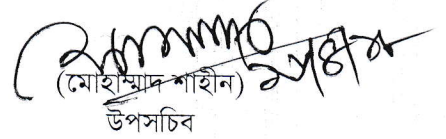 (মোহাম্মাদ শাহীন)
উপসচিব